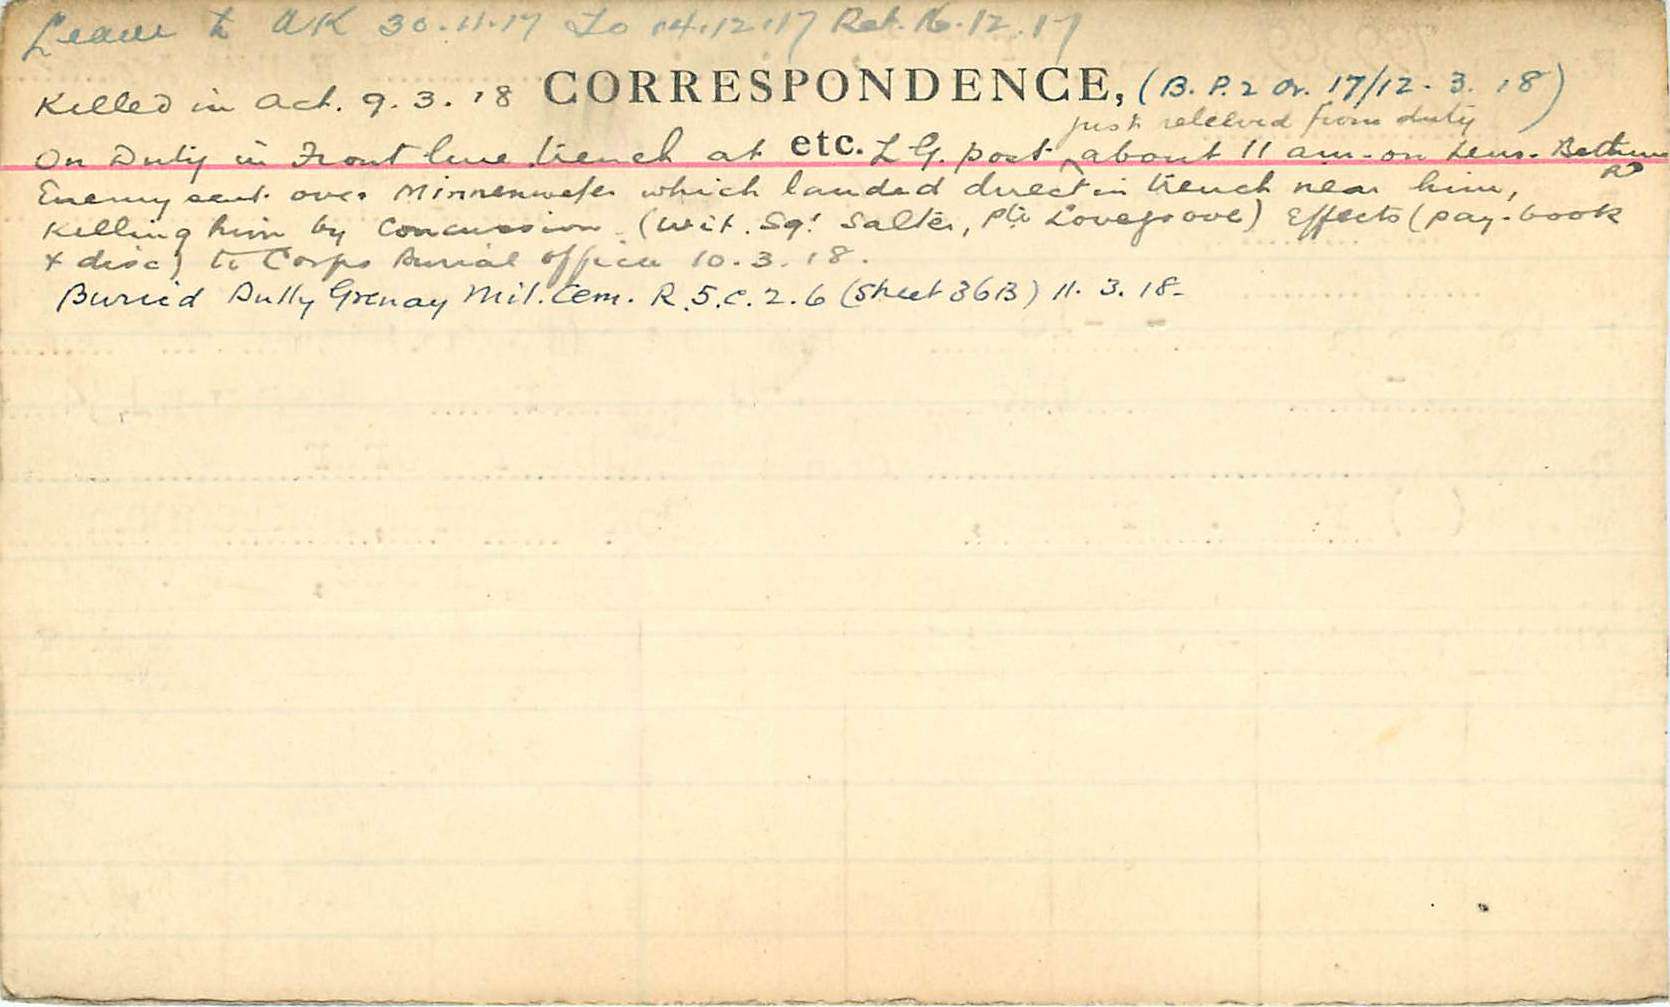 Leave to UK 30.11.17 To 14.12.17 Ret. 16.12.17
Killed in Act. 9.3.18 CORRESPONDENCE, (B.P.2 Or. 17/12.3.18)
just releived from duty
On Duty in Front line trench at etc. L G. post ^ about 11 am - on Lens. Bethune
Rd
Enemy sent over Minnenwefer which landed direct in trench near him,
Killing him by Concussion. (Wit. Sgt Salter, Pte Lovegrove) Effects (pay-book
+ disc) to Corps Burial Officer 10.3.18.
Buried Bully Grenay Mil. Cem. R.5.c.2.6 (Sheet 36B) 11.3.18-